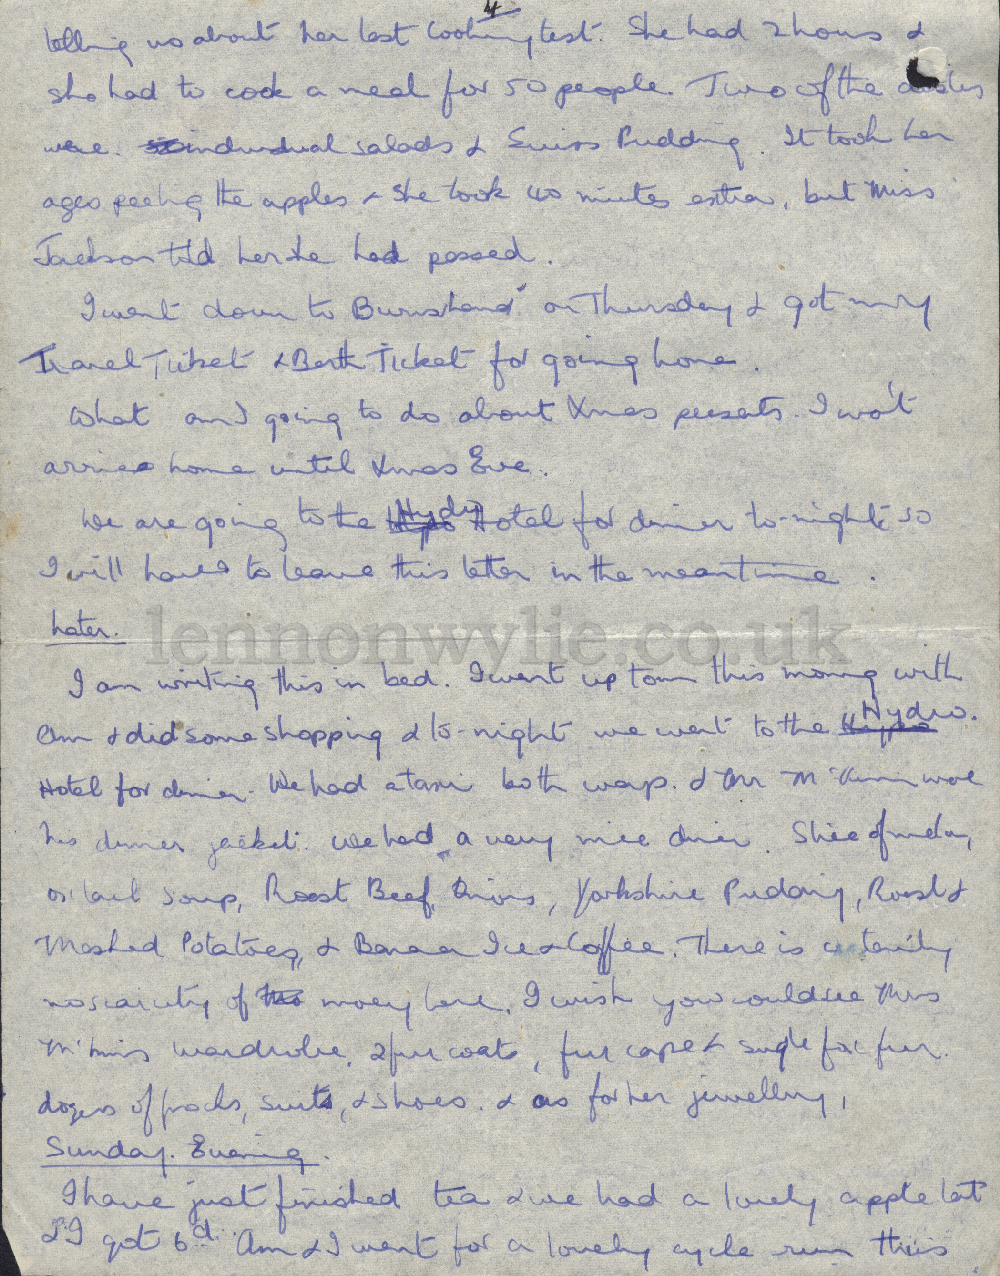 4
telling us about her last Cooking test. She had 2 hours &
she had to cook a meal for 50 people. Two of the dishes
were individual salads & Swiss Pudding. It took her
ages peeling the apples & she took 40 minutes extra, but Miss
Jackson told her she had passed.
I went down to Burns & on Thursday & got my
Travel Ticket & Berth Ticket for going home.
What am I going to do about Xmas presents. I won't
arrive home until Xmas Eve.
We are going to the Hydro Hotel for dinner to-night so
I will have to leave this letter in the meantime.
Later.
lennonwylie.co.uk
I am writing this in bed. I went up town this morning with
Ann & did some shopping & to-night we went to the Hydro.
Hotel for dinner. We had a taxi both ways. & Mr wore
his dinner jacket. We had a very nice dinner. Slice of melon,
oxtail soup, Roast Beef, Onions, Yorkshire Pudding, Roast &
Mashed Potatoes, & Banana Ice & Coffee. There is certainly
no scarcity of money here. I wish you could see Mrs
wardrobe, 2 fur coats, fur cape & single fox fur.
dozens of frocks, suits, & shoes. & as for her jewellery,
Sunday. Evening.
I have just finished tea & we had a lovely apple tart
& I got 6d. Ann & I went for a lovely cycle run this